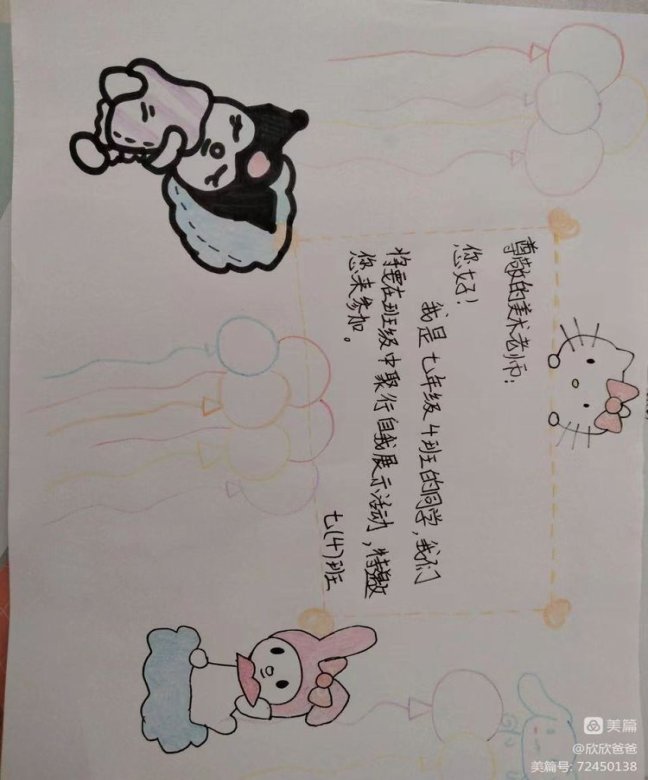 尊敬的美术老师：
您好！
我是七年级4班的同学，我们
将要在班级中聚行自我展示活动，特邀
您来参加。
七(4)班
美篇
@欣欣爸爸
美篇号: 72450138